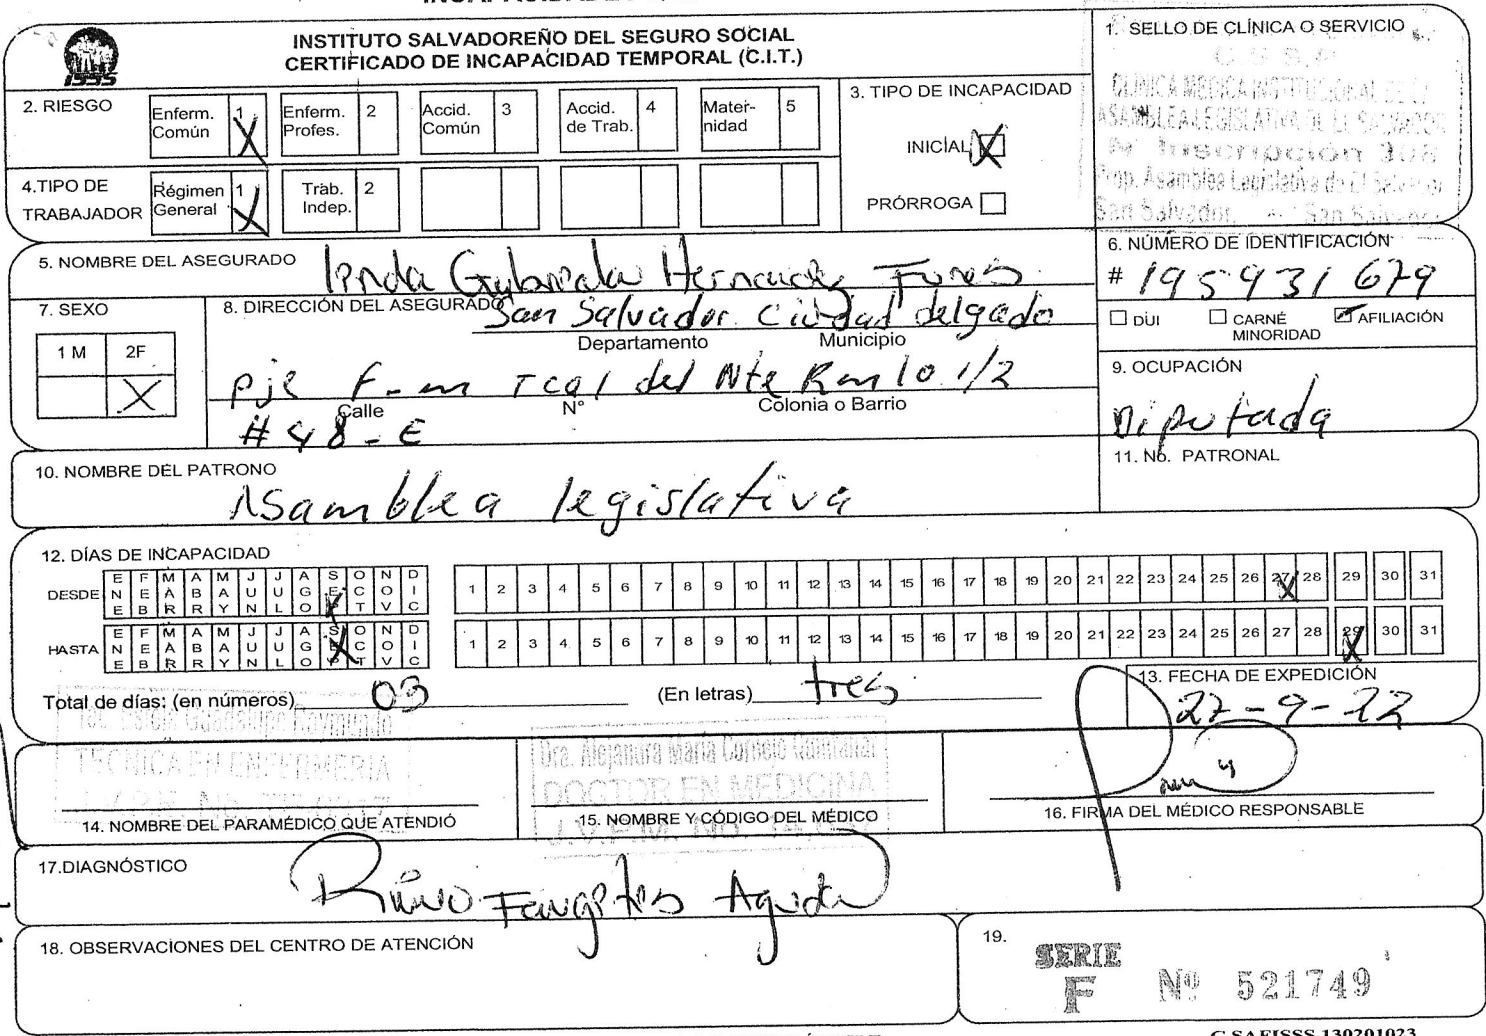 INSTITUTO SALVADOREÑO DEL SEGURO SOCIAL
CERTIFICADO DE INCAPACIDAD TEMPORAL (C.I.T.)
ISSS
1. SELLO DE CLÍNICA O SERVICIO
CLINICA MEDICA INSTITUCIONAL DE LA
ASAMBLEA LEGISLATIVA DE EL SALVADOR
Nº Inscripción 308
Prop. Asamblea Legislativa de El Salvador
San Salvador, San Salvador
2. RIESGO
Enferm. Común 1 X
Enferm. Profes. 2
Accid. Común 3
Accid. de Trab. 4
Mater-nidad 5
3. TIPO DE INCAPACIDAD
INICIAL X
PRÓRROGA
4.TIPO DE TRABAJADOR
Régimen General 1 X
Trab. Indep. 2
5. NOMBRE DEL ASEGURADO Hernandez Funes
6. NÚMERO DE IDENTIFICACIÓN
# 195931679
DUI CARNÉ MINORIDAD AFILIACIÓN
7. SEXO
1 M 2F
X
8. DIRECCIÓN DEL ASEGURADO San Salvador Ciudad delgado
Departamento Municipio
pje F-m Tcal del Nte Km 10 1/2
Calle N° Colonia o Barrio
# 48-E
9. OCUPACIÓN
Diputada
10. NOMBRE DEL PATRONO
Asamblea legislativa
11. No. PATRONAL
12. DÍAS DE INCAPACIDAD
DESDE ENE FEB MAR ABR MAY JUN JUL AGO SEP OCT NOV DIC 1 2 3 4 5 6 7 8 9 10 11 12 13 14 15 16 17 18 19 20 21 22 23 24 25 26 27 28 29 30 31
HASTA ENE FEB MAR ABR MAY JUN JUL AGO SEP OCT NOV DIC 1 2 3 4 5 6 7 8 9 10 11 12 13 14 15 16 17 18 19 20 21 22 23 24 25 26 27 28 29 30 31
Total de días: (en números) 03 (En letras) tres
13. FECHA DE EXPEDICIÓN
27-9-22
Guadalupe Raymundo
TECNICA EN ENFERMERIA
Dra. Alejandra María Cornejo Quintanar
DOCTOR EN MEDICINA
J.V.P.M. No.
14. NOMBRE DEL PARAMÉDICO QUE ATENDIÓ
15. NOMBRE Y CÓDIGO DEL MÉDICO
16. FIRMA DEL MÉDICO RESPONSABLE
17.DIAGNÓSTICO
Rino Faringitis Aguda
18. OBSERVACIONES DEL CENTRO DE ATENCIÓN
19.
SERIE
F Nº 521749
G SAFISSS 130201023